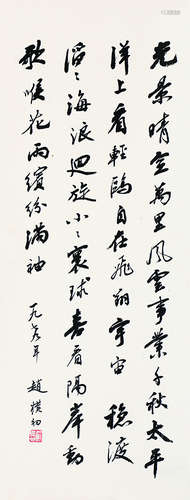 光景晴空萬里風雲事業千秋太平
洋上看輕鷗自在飛翔宇宙 穩渡
滔滔海浪迴旋小小寰球喜看隔岸動
歌喉花雨繽紛滿袖
一九 年 趙樸初